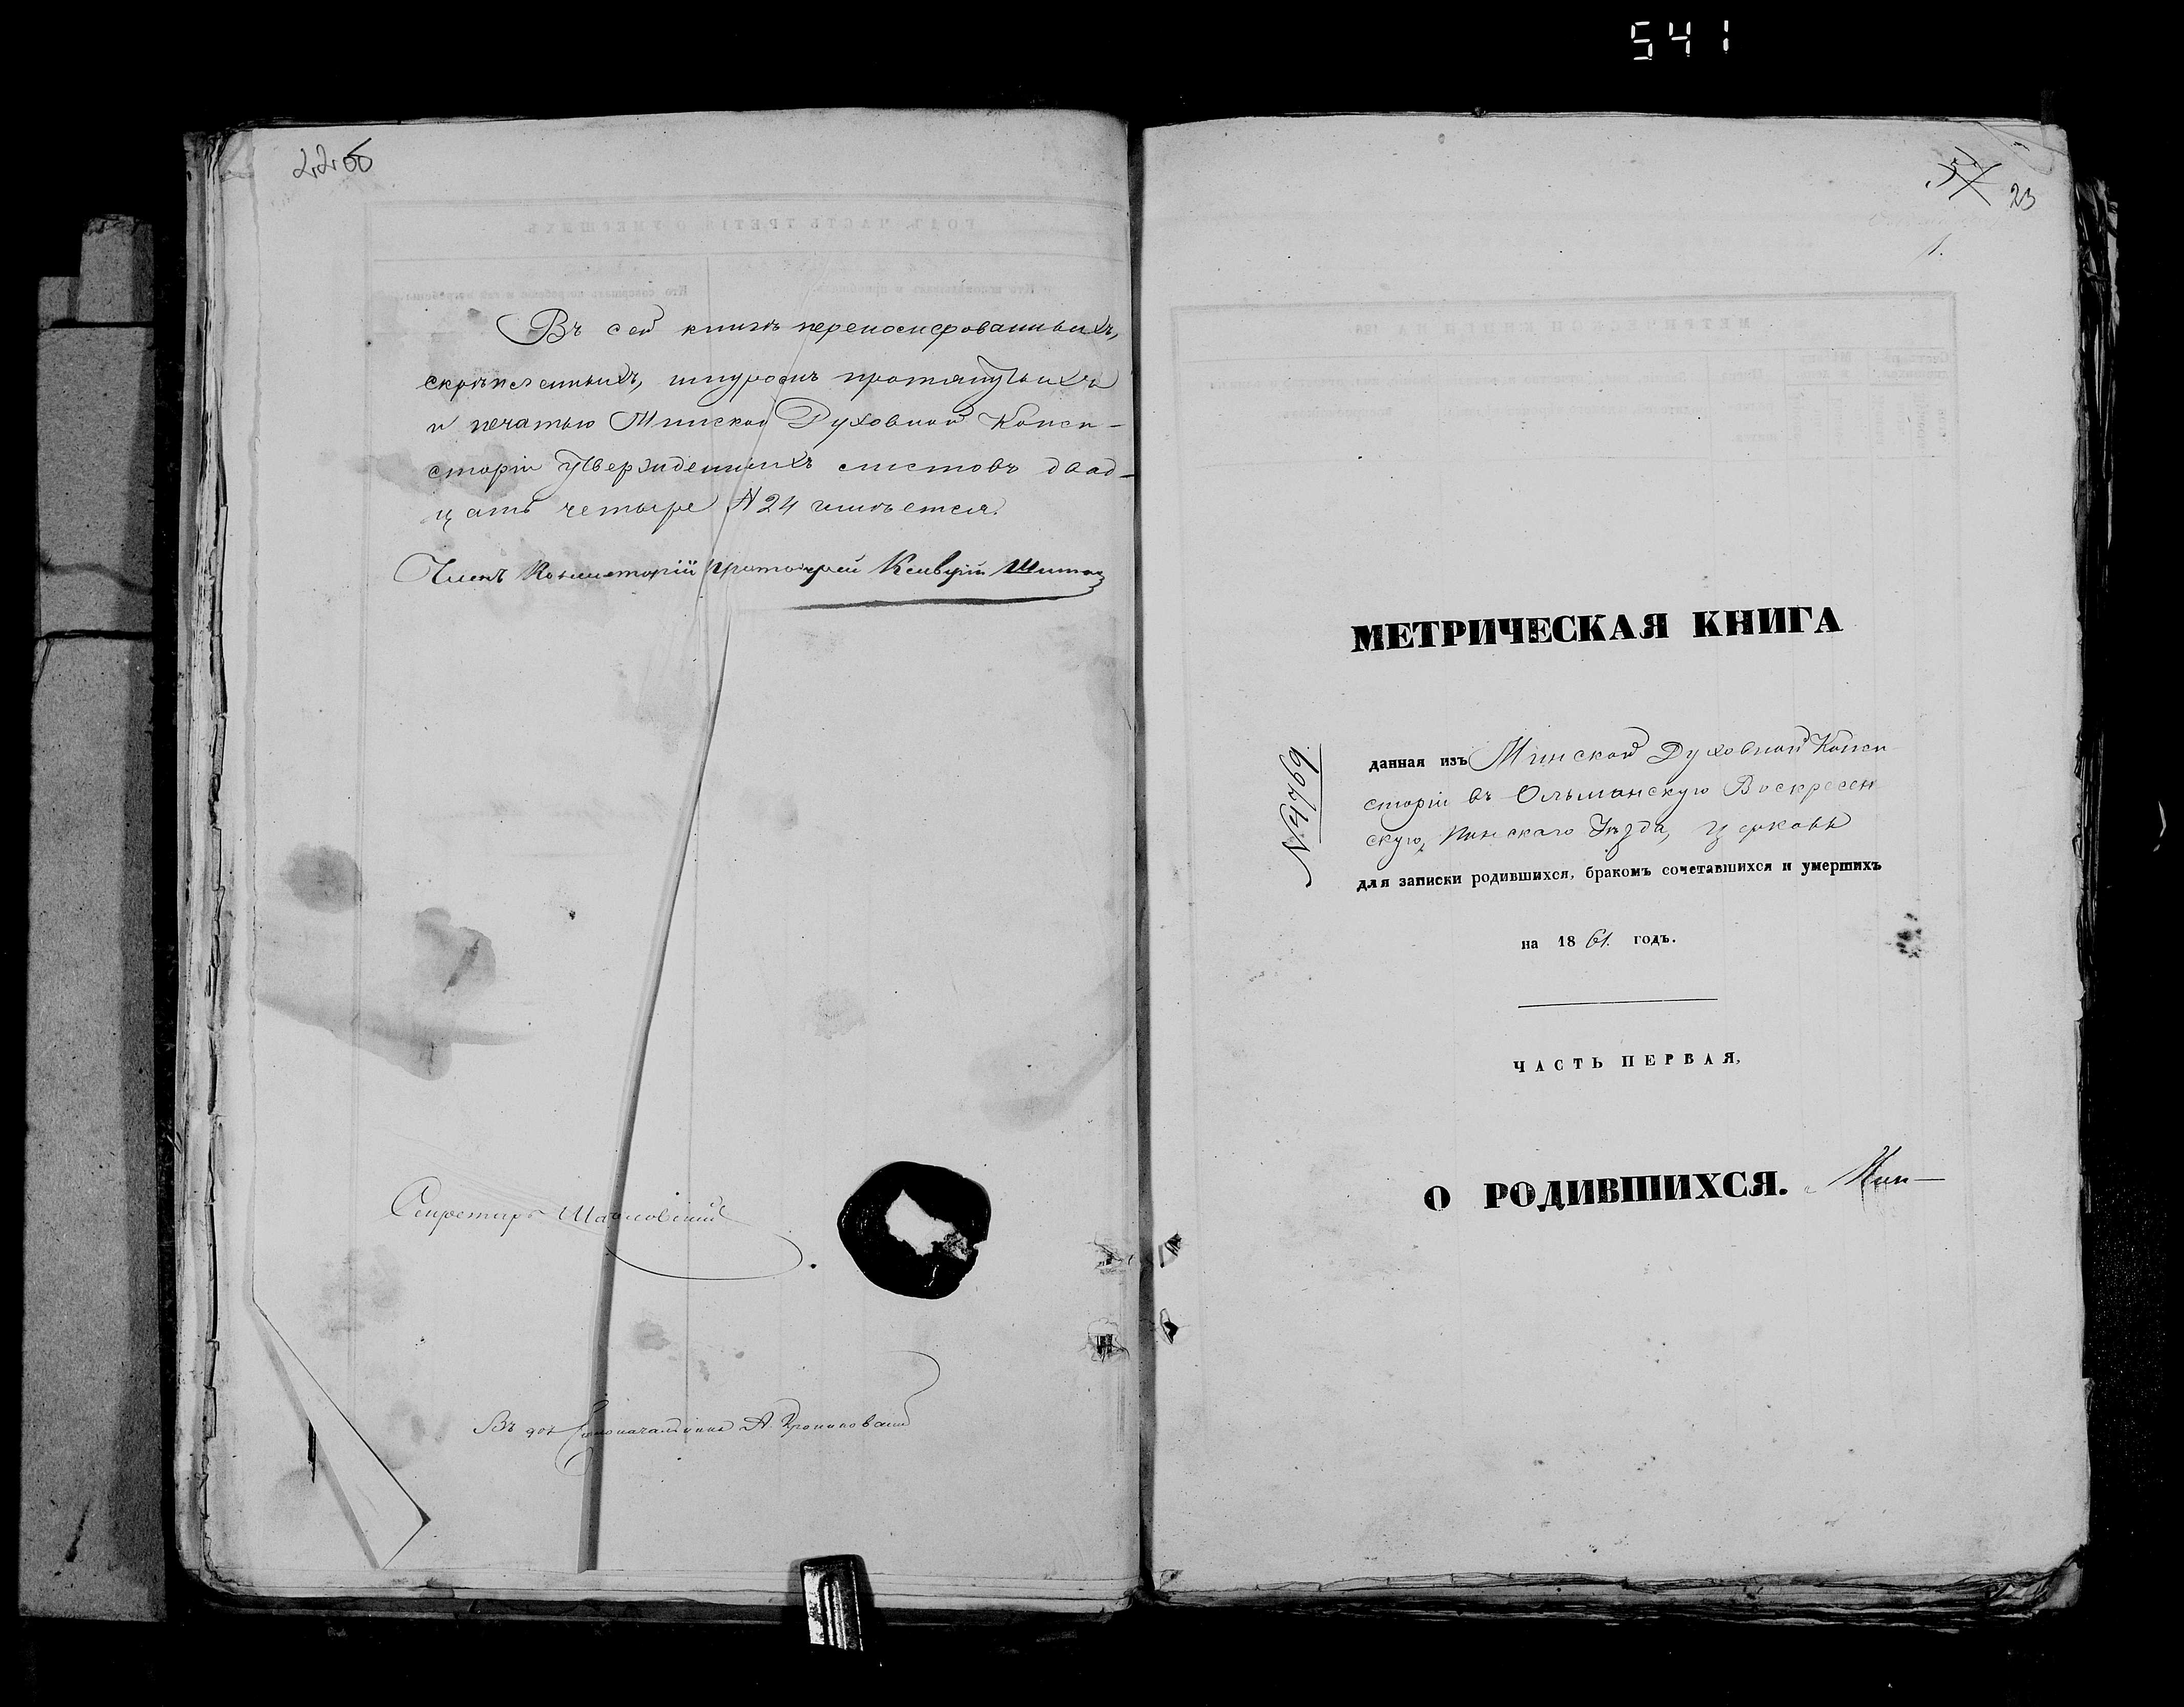 541
22об
Въ сей книгѣ перенумерованныхъ,
скрѣпленныхъ, шнуромъ протянутыхъ
и печатью Минской Духовной Конси-
сторіи утвержденныхъ листовъ двад-
цать четыре № 24 имѣется.
Членъ Консисторіи Протоіерей
Секретарь
Въ дол. Столоначальника А.
23
1.
МЕТРИЧЕСКАЯ КНИГА
№ 4769
данная изъ Минской Духовной Конси
сторіи въ Ольманскую Воскресен
скую, Пинскаго Уѣзда, церковь
для записки родившихся, бракомъ сочетавшихся и умершихъ
на 1861. годъ.
ЧАСТЬ ПЕРВАЯ,
О РОДИВШИХСЯ.